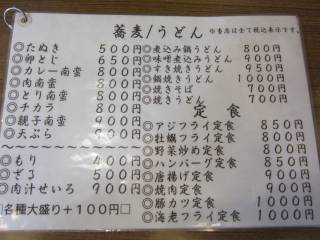 蕎麦/うどん ※当店は全て税込表示です。
◎たぬき 500円
◎卵とじ 650円
◎カレー南蛮 800円
◎肉南蛮 800円
◎とり南蛮 500円
◎チカラ 800円
◎親子南蛮 900円
◎天ぷら 900円
〜〜〜〜〜〜〜〜〜〜
◎もり 400円
◎ざる 500円
◎肉汁せいろ 900円
□各種大盛り+100円□
◎煮込み鍋うどん 800円
◎味噌煮込みうどん 900円
◎すき焼きうどん 950円
◎鍋焼きうどん 1000円
◎焼きそば 700円
◎焼きうどん 700円
定食
◎アジフライ定食 850円
◎牡蠣フライ定食 850円
◎野菜炒め定食 800円
◎ハンバーグ定食 850円
◎唐揚げ定食 900円
◎焼肉定食 900円
◎豚カツ定食 900円
◎海老フライ定食 900円